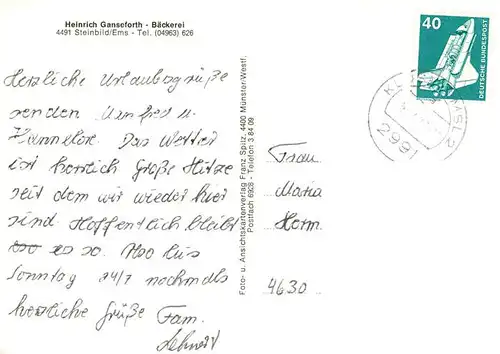 Heinrich Ganseforth - Bäckerei
4491 Steinbild/Ems - Tel. (04963) 626
Herzliche Urlaubsgrüße
senden Manfred u.
Hannelore. Das Wetter
ist herrlich große Hitze
seit dem wir wieder hier
sind. Hoffentlich bleibt
es so. Also bis
Sonntag 24/7 nochmals
herzliche Grüße Fam.
Foto- u. Ansichtskartenverlag Franz Spitz, 4400 Münster/Westf.
Postfach 6926 - Telefon 3 84 09
40
DEUTSCHE BUNDESPOST
2991
Frau
Maria
Herm
4630